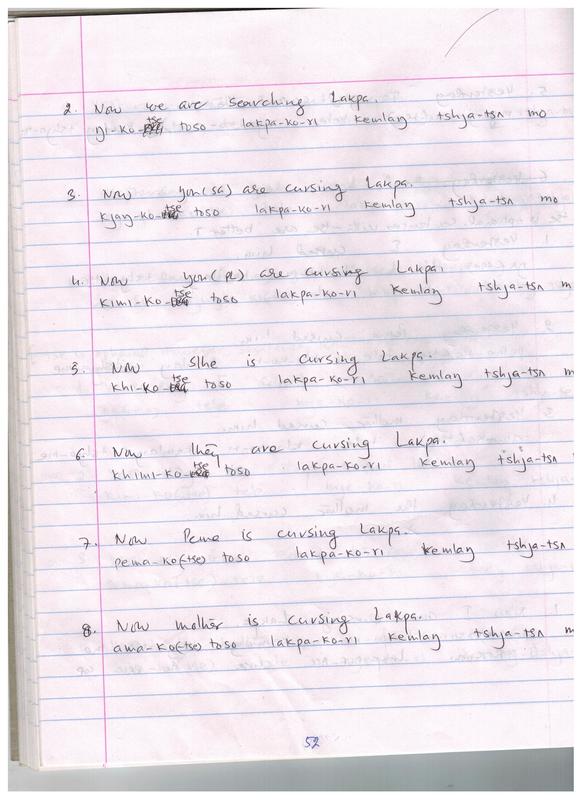 2. Now we are searching Lakpa.
ŋi-ko-tse toso lakpa-ko-ri kemlaŋ tshja-tsʌ mo
3. Now you(sG) are cursing Lakpa.
kjaŋ-ko-tse toso lakpa-ko-ri kemlaŋ tshja-tsʌ mo
4. Now you(pl) are cursing Lakpa.
kimi-ko-tse toso lakpa-ko-ri kemlaŋ tshja-tsʌ m
5. Now s/he is cursing Lakpa.
khi-ko-tse toso lakpa-ko-ri kemlaŋ tshja-tsʌ m
6. Now they are cursing Lakpa.
khimi-ko-tse toso lakpa-ko-ri kemlaŋ tshja-tsʌ
7. Now Pema is cursing Lakpa.
pema-ko(-tse) toso lakpa-ko-ri kemlaŋ tshja-tsʌ
8. Now mother is cursing Lakpa.
ama-ko(-tse) toso lakpa-ko-ri kemlaŋ tshja-tsʌ m
52